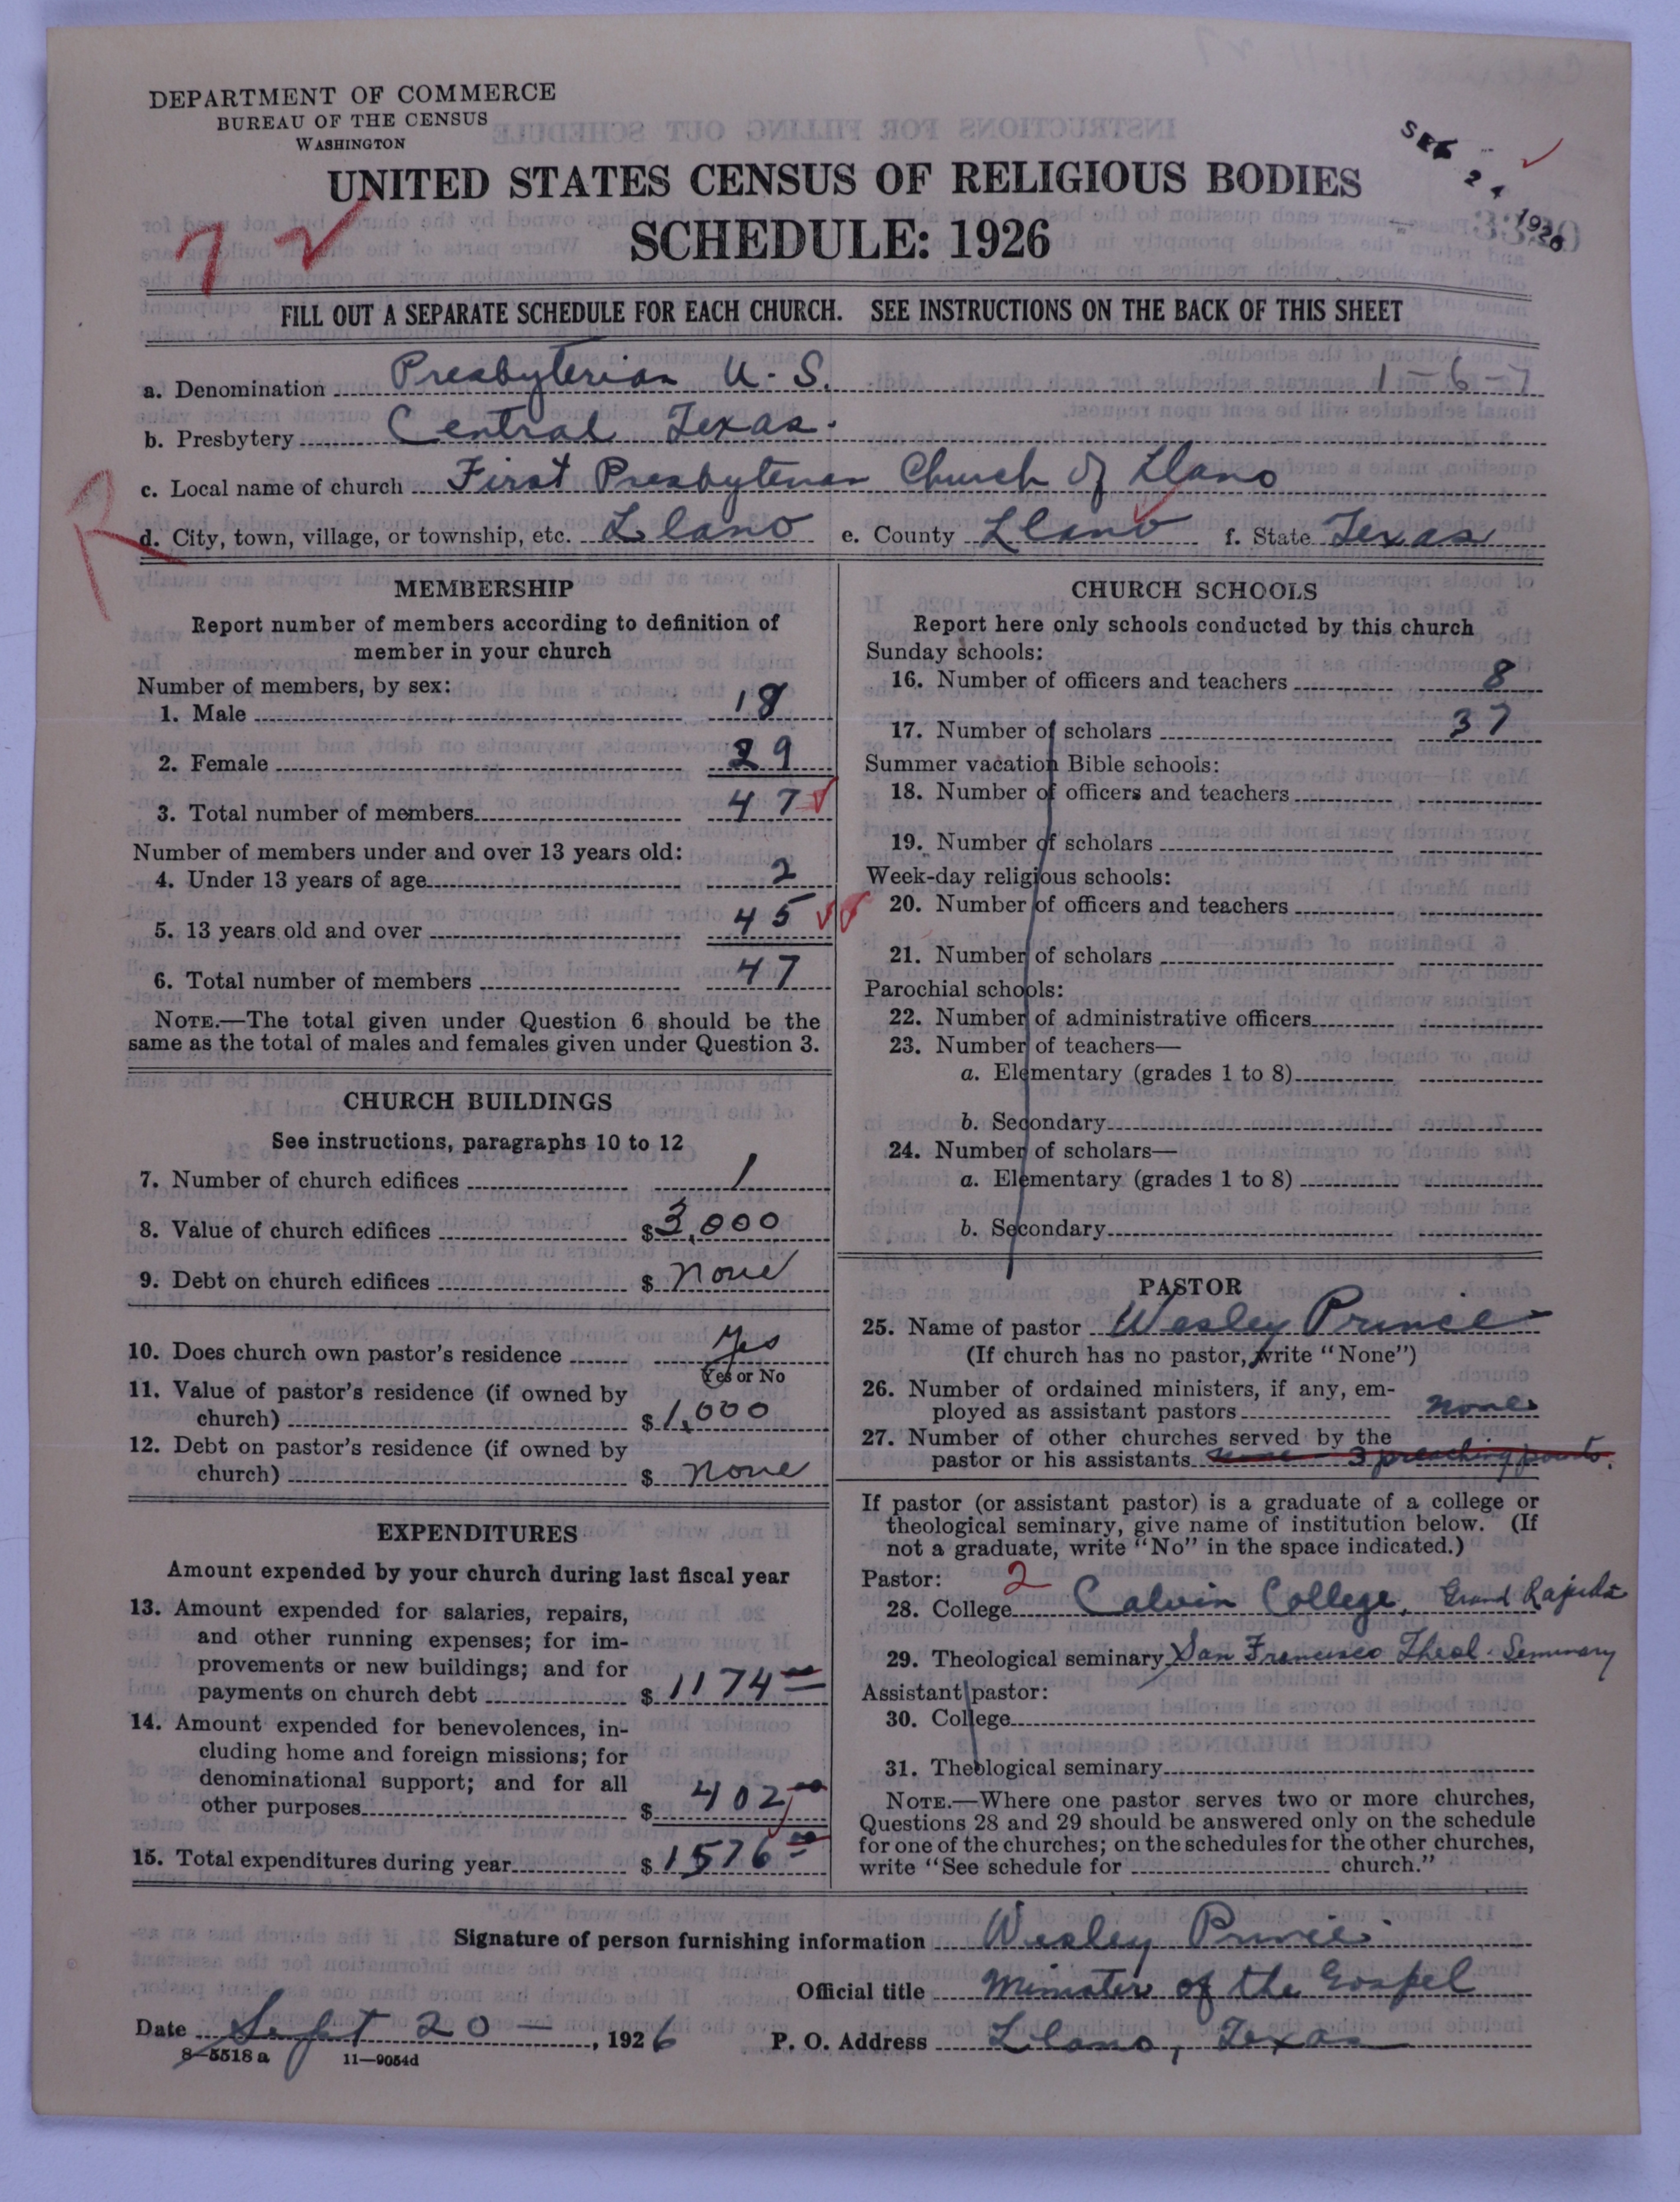 DEPARTMENT OF COMMERCE
BUREAU OF THE CENSUS
WASHINGTON
UNITED STATES CENSUS OF RELIGIOUS BODIES
SCHEDULE: 1926
FILL OUT A SEPARATE SCHEDULE FOR EACH CHURCH. SEE INSTRUCTIONS ON THE BACK OF THIS SHEET
a. Denomination Presbyterian U. S. 1-6-7
b. Presbytery Central Texas.
c. Local name of church First Presbyterian Church of Llano
R
d. City, town, village, or township, etc. Llano e. County Llano f. State Texas
MEMBERSHIP
Report number of members according to definition of
member in your church
Number of members, by sex:
1. Male 18
2. Female 29
3. Total number of members 47
Number of members under and over 13 years old:
4. Under 13 years of age 2
5. 13 years old and over 45
6. Total number of members 47
NOTE.—The total given under Question 6 should be the
same as the total of males and females given under Question 3.
CHURCH BUILDINGS
See instructions, paragraphs 10 to 12
7. Number of church edifices 1
8. Value of church edifices $3,000
9. Debt on church edifices $ none
10. Does church own pastor's residence Yes
Yes or No
11. Value of pastor's residence (if owned by
church) $1,000
12. Debt on pastor's residence (if owned by
church) $ none
EXPENDITURES
Amount expended by your church during last fiscal year
13. Amount expended for salaries, repairs,
and other running expenses; for im-
provements or new buildings; and for
payments on church debt $1174 00
14. Amount expended for benevolences, in-
cluding home and foreign missions; for
denominational support; and for all
other purposes $ 402 00
15. Total expenditures during year $1576 00
CHURCH SCHOOLS
Report here only schools conducted by this church
Sunday schools:
16. Number of officers and teachers 8
17. Number of scholars 37
Summer vacation Bible schools:
18. Number of officers and teachers
19. Number of scholars
Week-day religious schools:
20. Number of officers and teachers
21. Number of scholars
Parochial schools:
22. Number of administrative officers
23. Number of teachers—
a. Elementary (grades 1 to 8)
b. Secondary
24. Number of scholars—
a. Elementary (grades 1 to 8)
b. Secondary
PASTOR
25. Name of pastor Wesley Prince
(If church has no pastor, write "None")
26. Number of ordained ministers, if any, em-
ployed as assistant pastors none
27. Number of other churches served by the
pastor or his assistants none 3 preaching points.
If pastor (or assistant pastor) is a graduate of a college or
theological seminary, give name of institution below. (If
not a graduate, write "No" in the space indicated.)
Pastor: 2
28. College Calvin College, Grand Rapids
29. Theological seminary San Francisco Theol. Seminary
Assistant pastor:
30. College
31. Theological seminary
NOTE.—Where one pastor serves two or more churches,
Questions 28 and 29 should be answered only on the schedule
for one of the churches; on the schedules for the other churches,
write "See schedule for church."
Signature of person furnishing information Wesley Prince
Official title Minister of the Gospel
Date Sept 20 — , 1926 P. O. Address Llano, Texas
8—5518 a 11—9054d